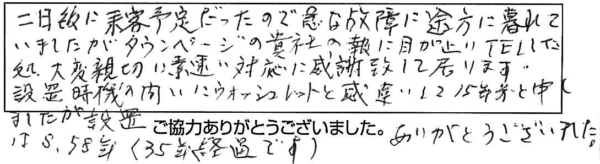 二日後に来客予定だったので急な故障に途方に暮れて
いましたがタウンページの貴社の報に目が止りTELした
処大変親切に素速い対応に感謝致して居ります。
設置時機の問いにウォッシュレットと感違いして15年前と申し
ましたが設置
は S,58年(35年経過です)
ご協力ありがとうございました。
ありがとうございました。